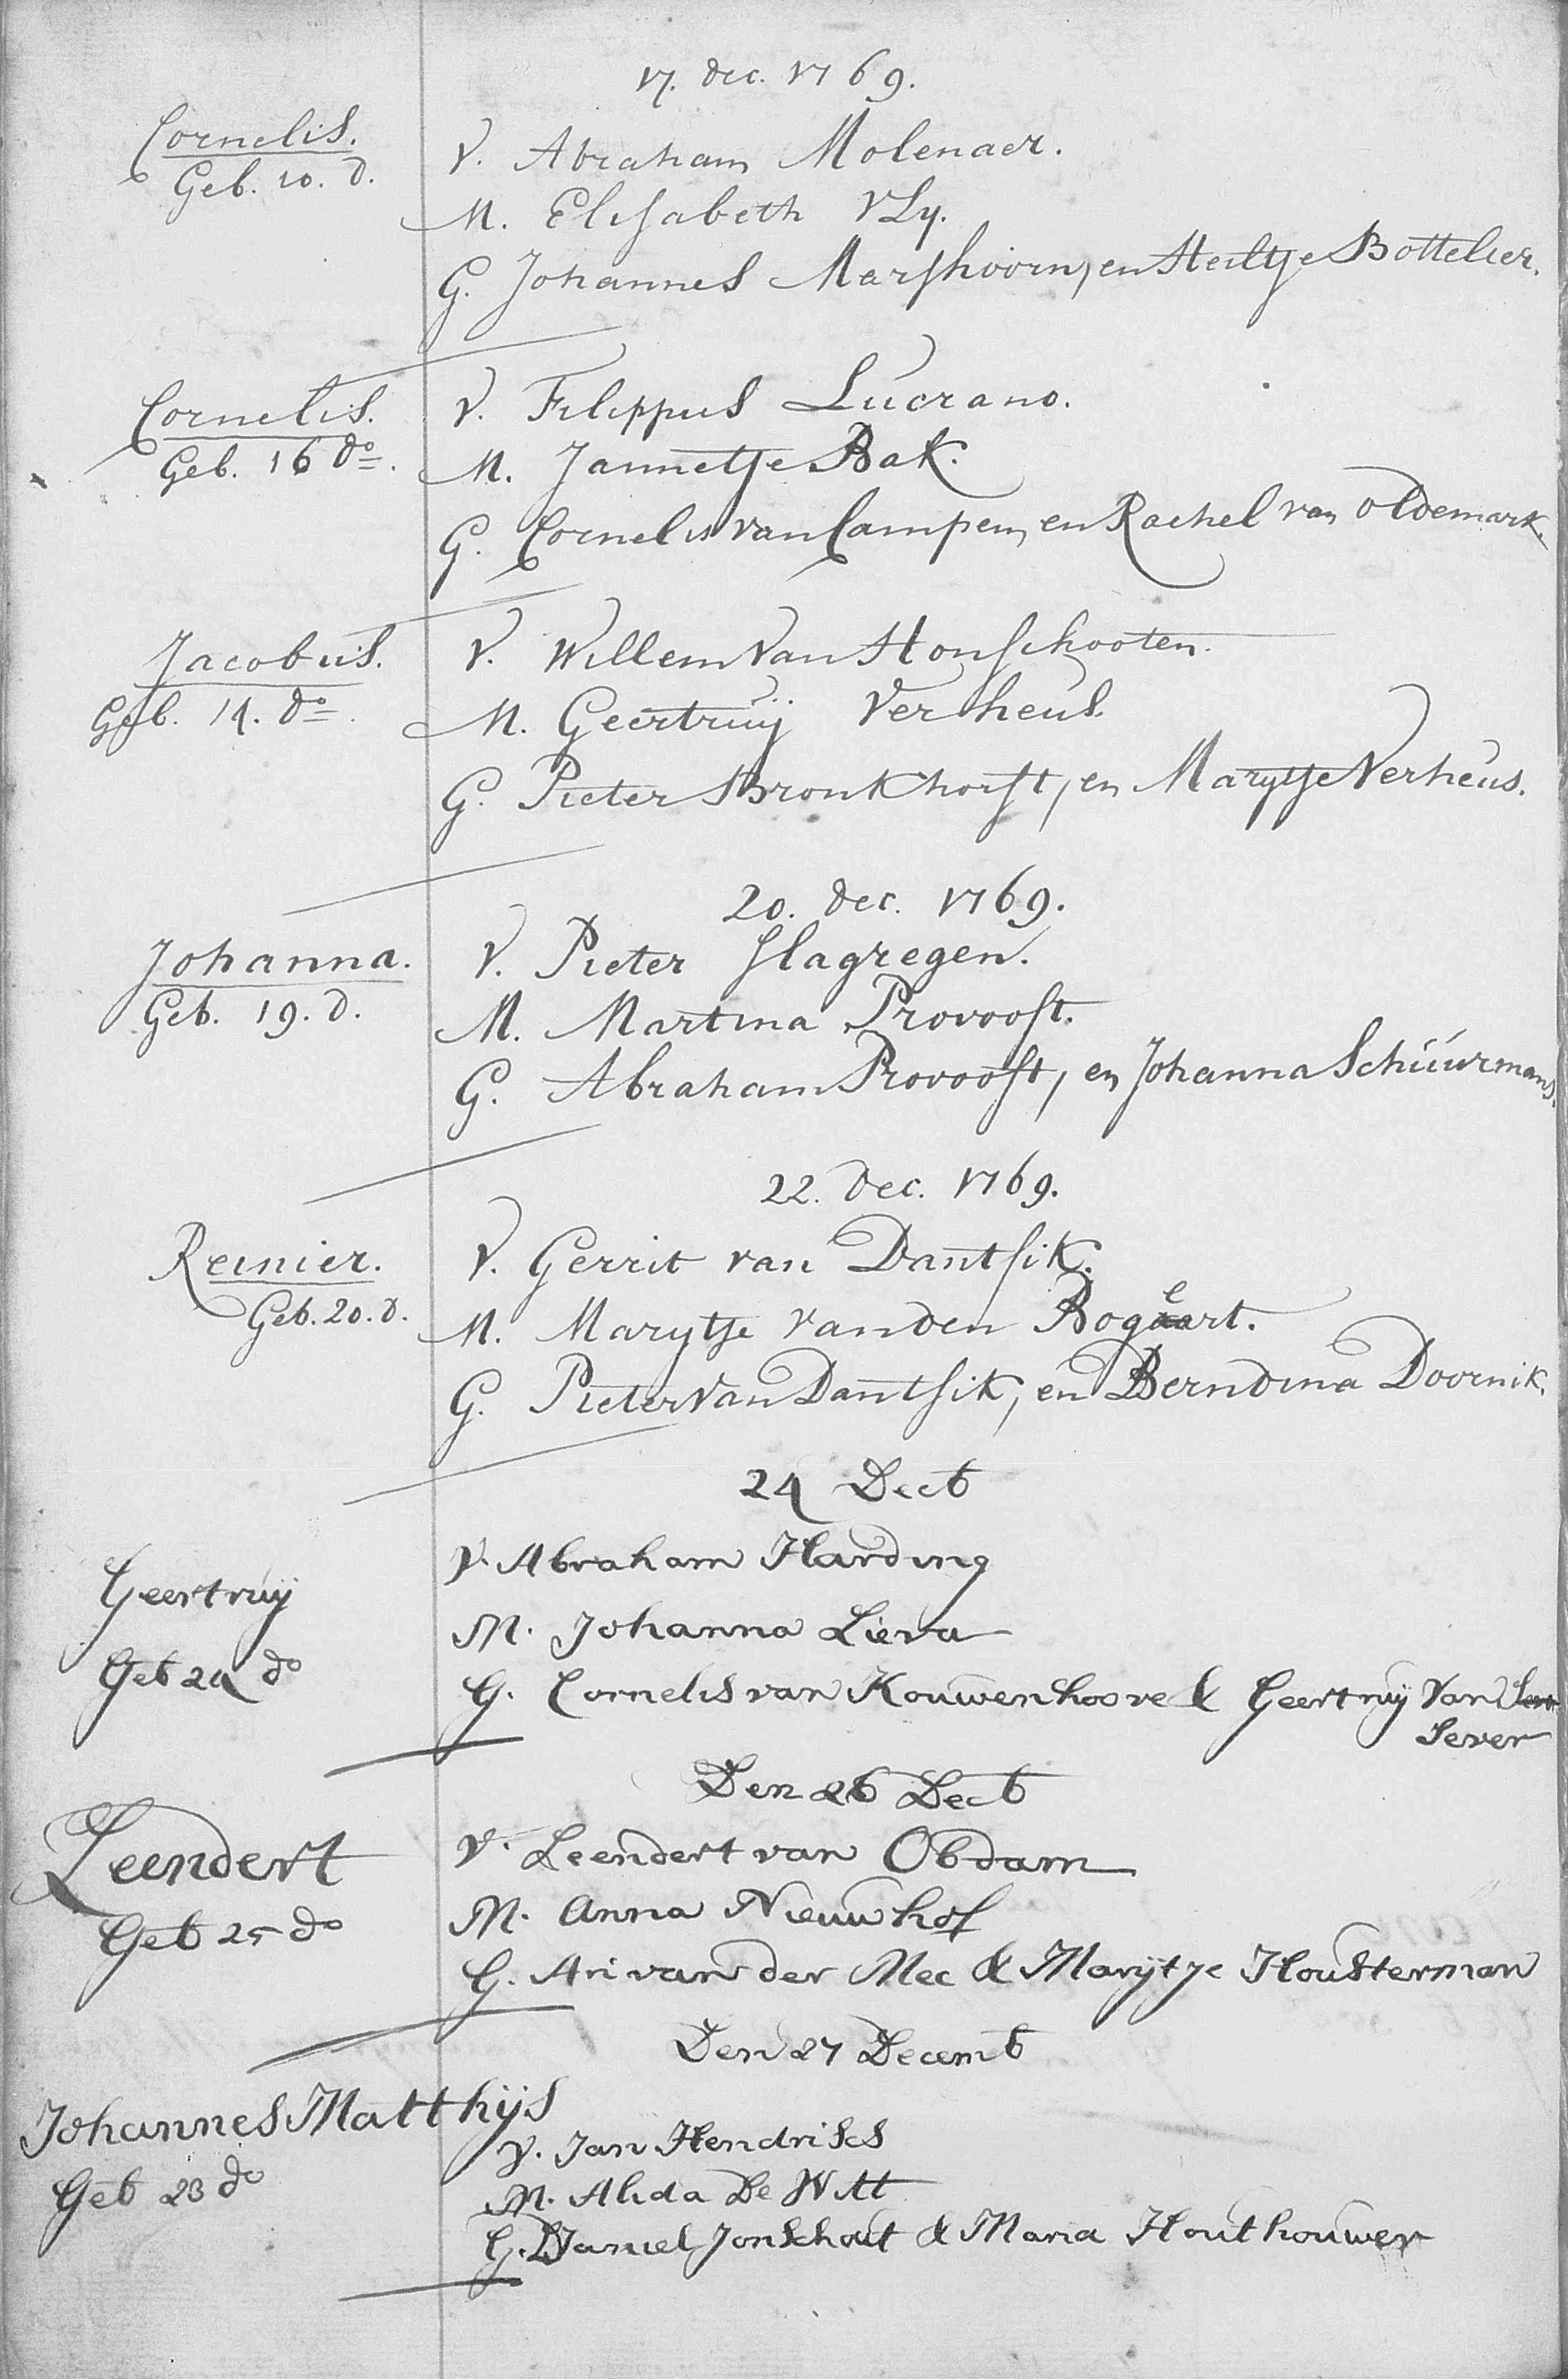 17. dec. 1769.
Cornelis.
Geb. 10. d.
V. Abraham Molenaer.
M. Elisabeth VLy.
G. Johannes Marshoorn, en Heiltje Bottelier.
Cornelis.
Geb. 16 do.
V. Filippus Lucrano.
M. Jannetje Bak.
G. Cornelis van Campen, en Rachel van Oldemark.
Jacobus.
Geb. 14. do.
V. Willem Van Honschooten.
M. Geertruij Verheus.
G. Pieter Bronkhorst, en Marytje Verheus.
20. dec. 1769.
Johanna.
Geb. 19. d.
V. Pieter Slagregen.
M. Martina Provoost.
G. Abraham Provoost, en Johanna Schuurmans.
22. dec. 1769.
Reinier.
Geb. 20. d.
V. Gerrit van Dantsik.
M. Marytje van den Bogeart.
G. Pieter Van Dantsik, en Berndina Doornik.
24 Decb
Geertruij
Geb 24 do
V. Abraham Harding
M. Johanna Lieva
G. Cornelis van Kouwenhoove & Geertruij Van
Sever
Den 26 Decb
Leendert
Geb 25 do
V. Leendert van Obdam
M. Anna Nieuwhof
G. Ari van der Mec & Marijtje Housterman
Den 27 Decemb
Johannes Matthijs
Geb 23 do
V. Jan Hendriks
M. Alida De Witt
G. Daniel Jonkhout & Maria Houthouwer